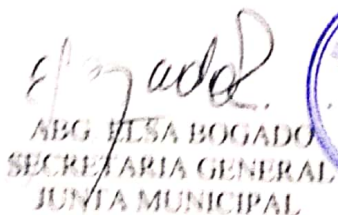 ABG ELSA BOGADO
SECRETARIA GENERAL
JUNTA MUNICIPAL